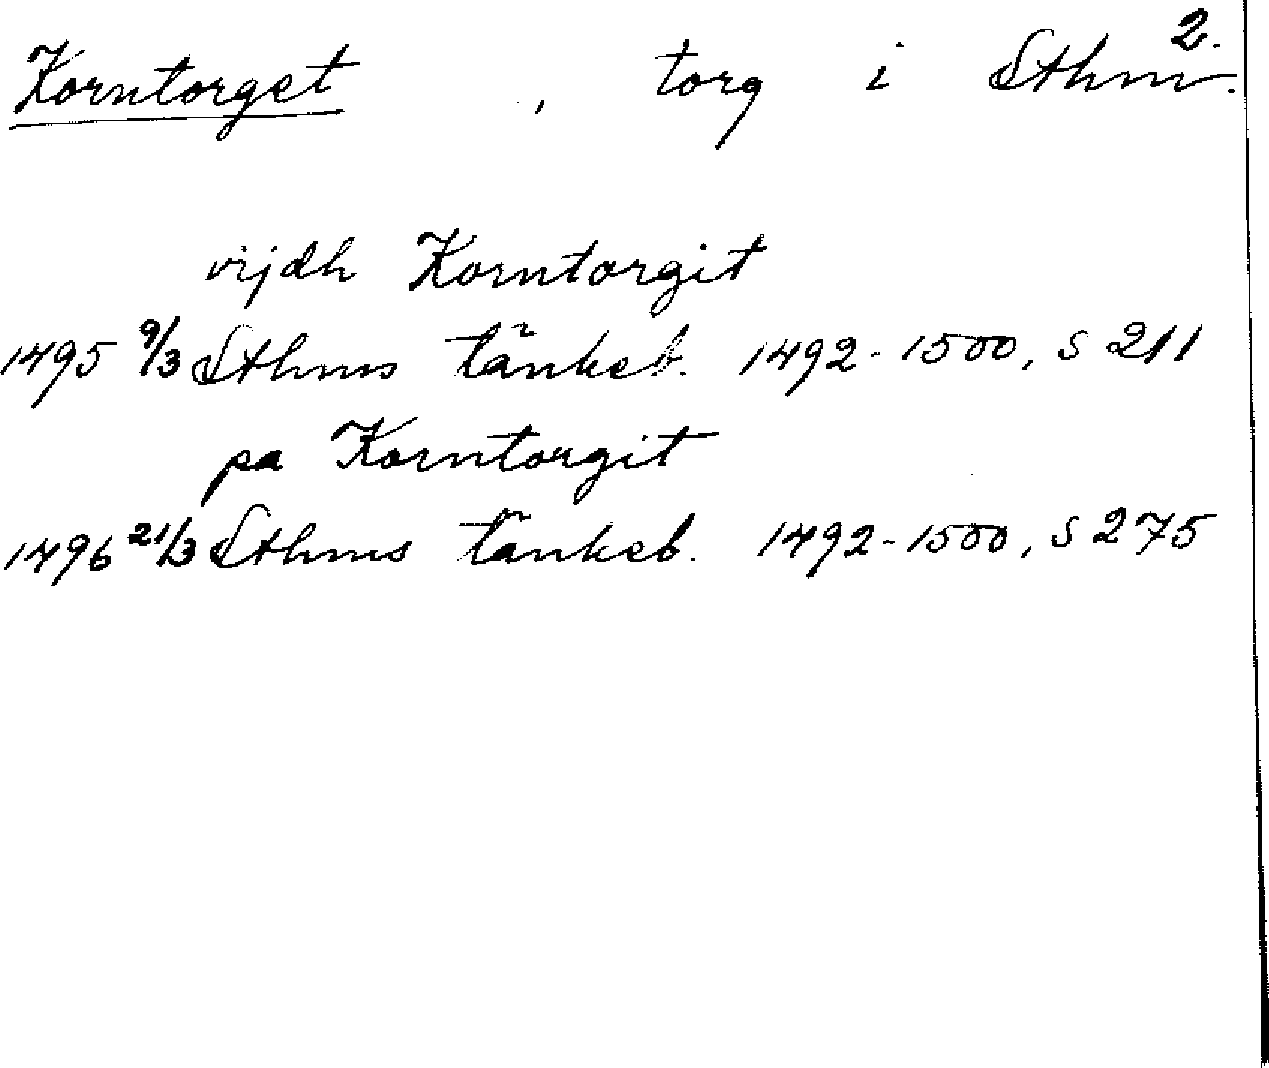 2.
Korntorget, torg i Sthm.
vijdh Korntorgit
1495 9/3 Sthms tänkeb. 1492-1500, s 211
pa Korntorgit
1496 21/3 Sthms tänkeb. 1492-1500, s 275